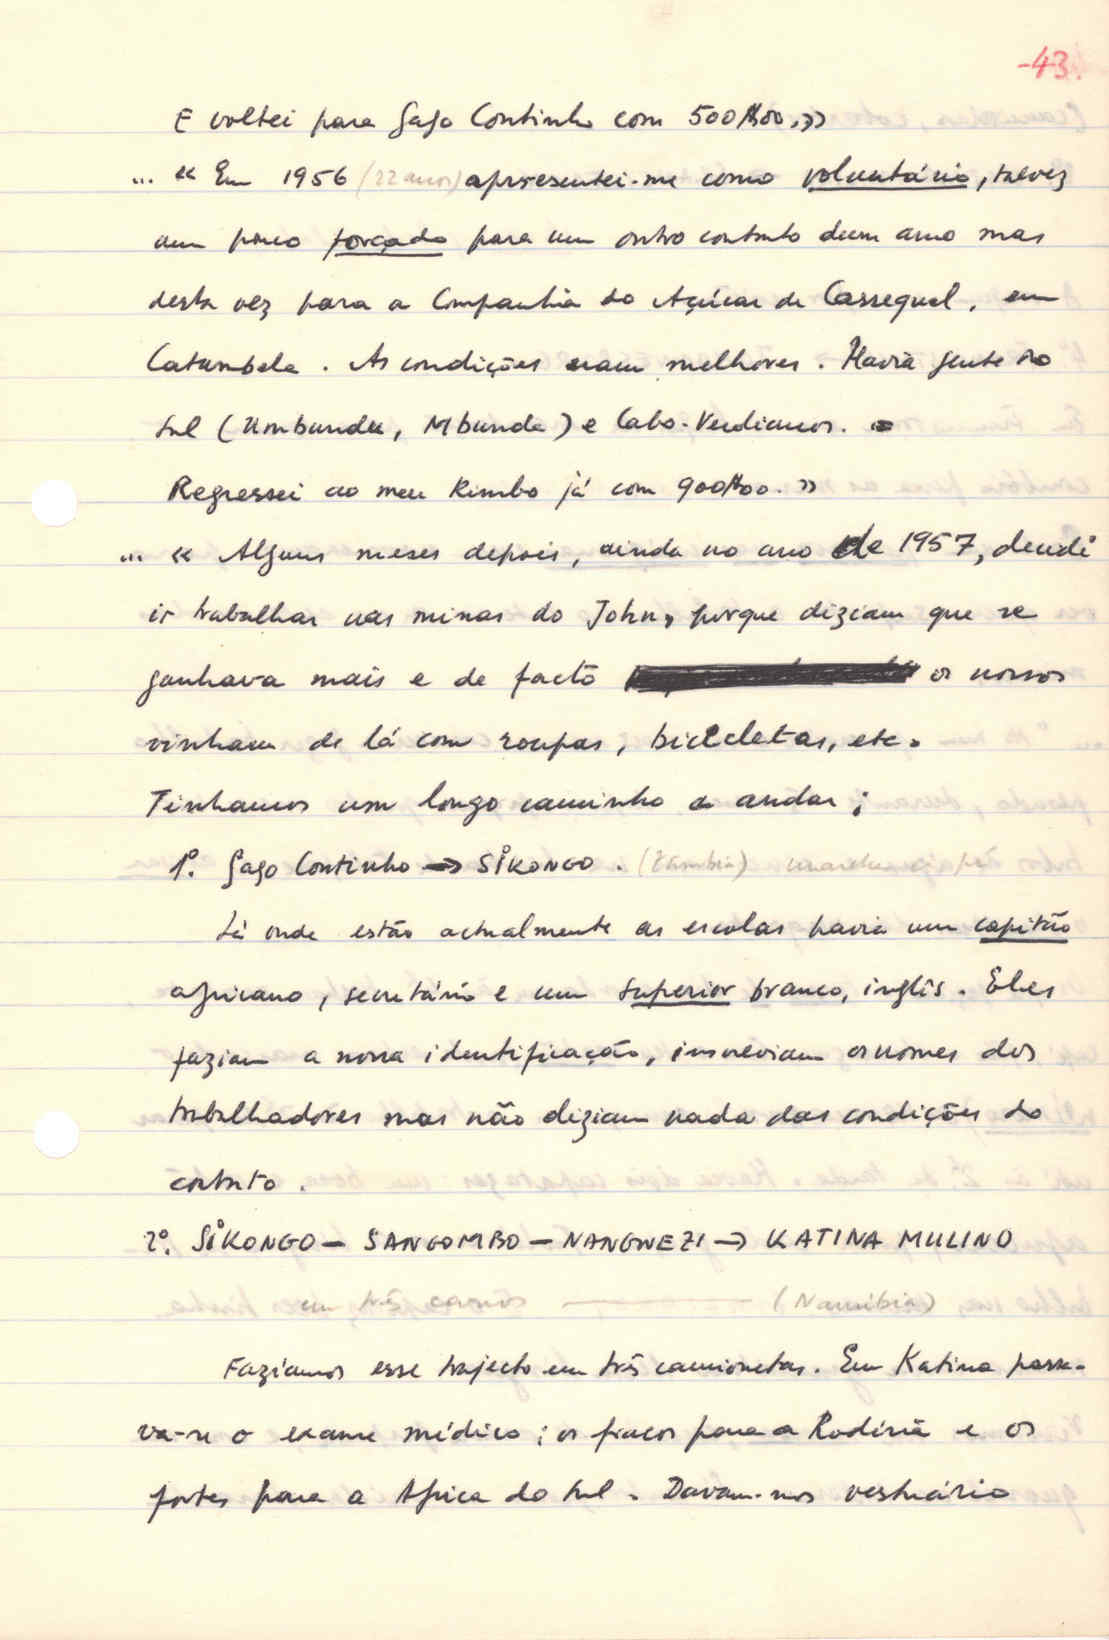 -43.
E voltei para Gago Coutinho com 500$00.»
... « Em 1956 (22 anos) apresentei-me como voluntário, talvez
um pouco forçado para um outro contrato dum ano mas
desta vez para a Companhia do Açúcar de Cassequel, em
Catumbela. As condições eram melhores. Havia gente do
Sul (Umbundu, Mbunda) e Cabo-Verdianos.
Regressei ao meu Kimbo já com 900$00. »
... « Alguns meses depois, ainda no ano de 1957, decidi
ir trabalhar nas minas do John, porque diziam que se
ganhava mais e de facto os nossos
vinham de lá com roupas, bicicletas, etc.
Tinhamos um longo caminho a andar;
1º. Gago Coutinho → SIKONGO. (Zambia) marcha a pé
Lá onde estão actualmente as escolas havia um capitão
africano, secretário e um superior branco, inglês. Eles
faziam a nossa identificação, inscreviam os nomes dos
trabalhadores mas não diziam nada das condições do
contrato.
2º. SIKONGO - SANGOMBO - NANGWEZI → KATINA MULINO
em três carros (Namibia)
Faziamos esse trajecto em três camionetas. Em Katina passa-
va-se o exame médico; os fracos para a Rodésia e os
fortes para a Africa do Sul. Davam-nos vestuário